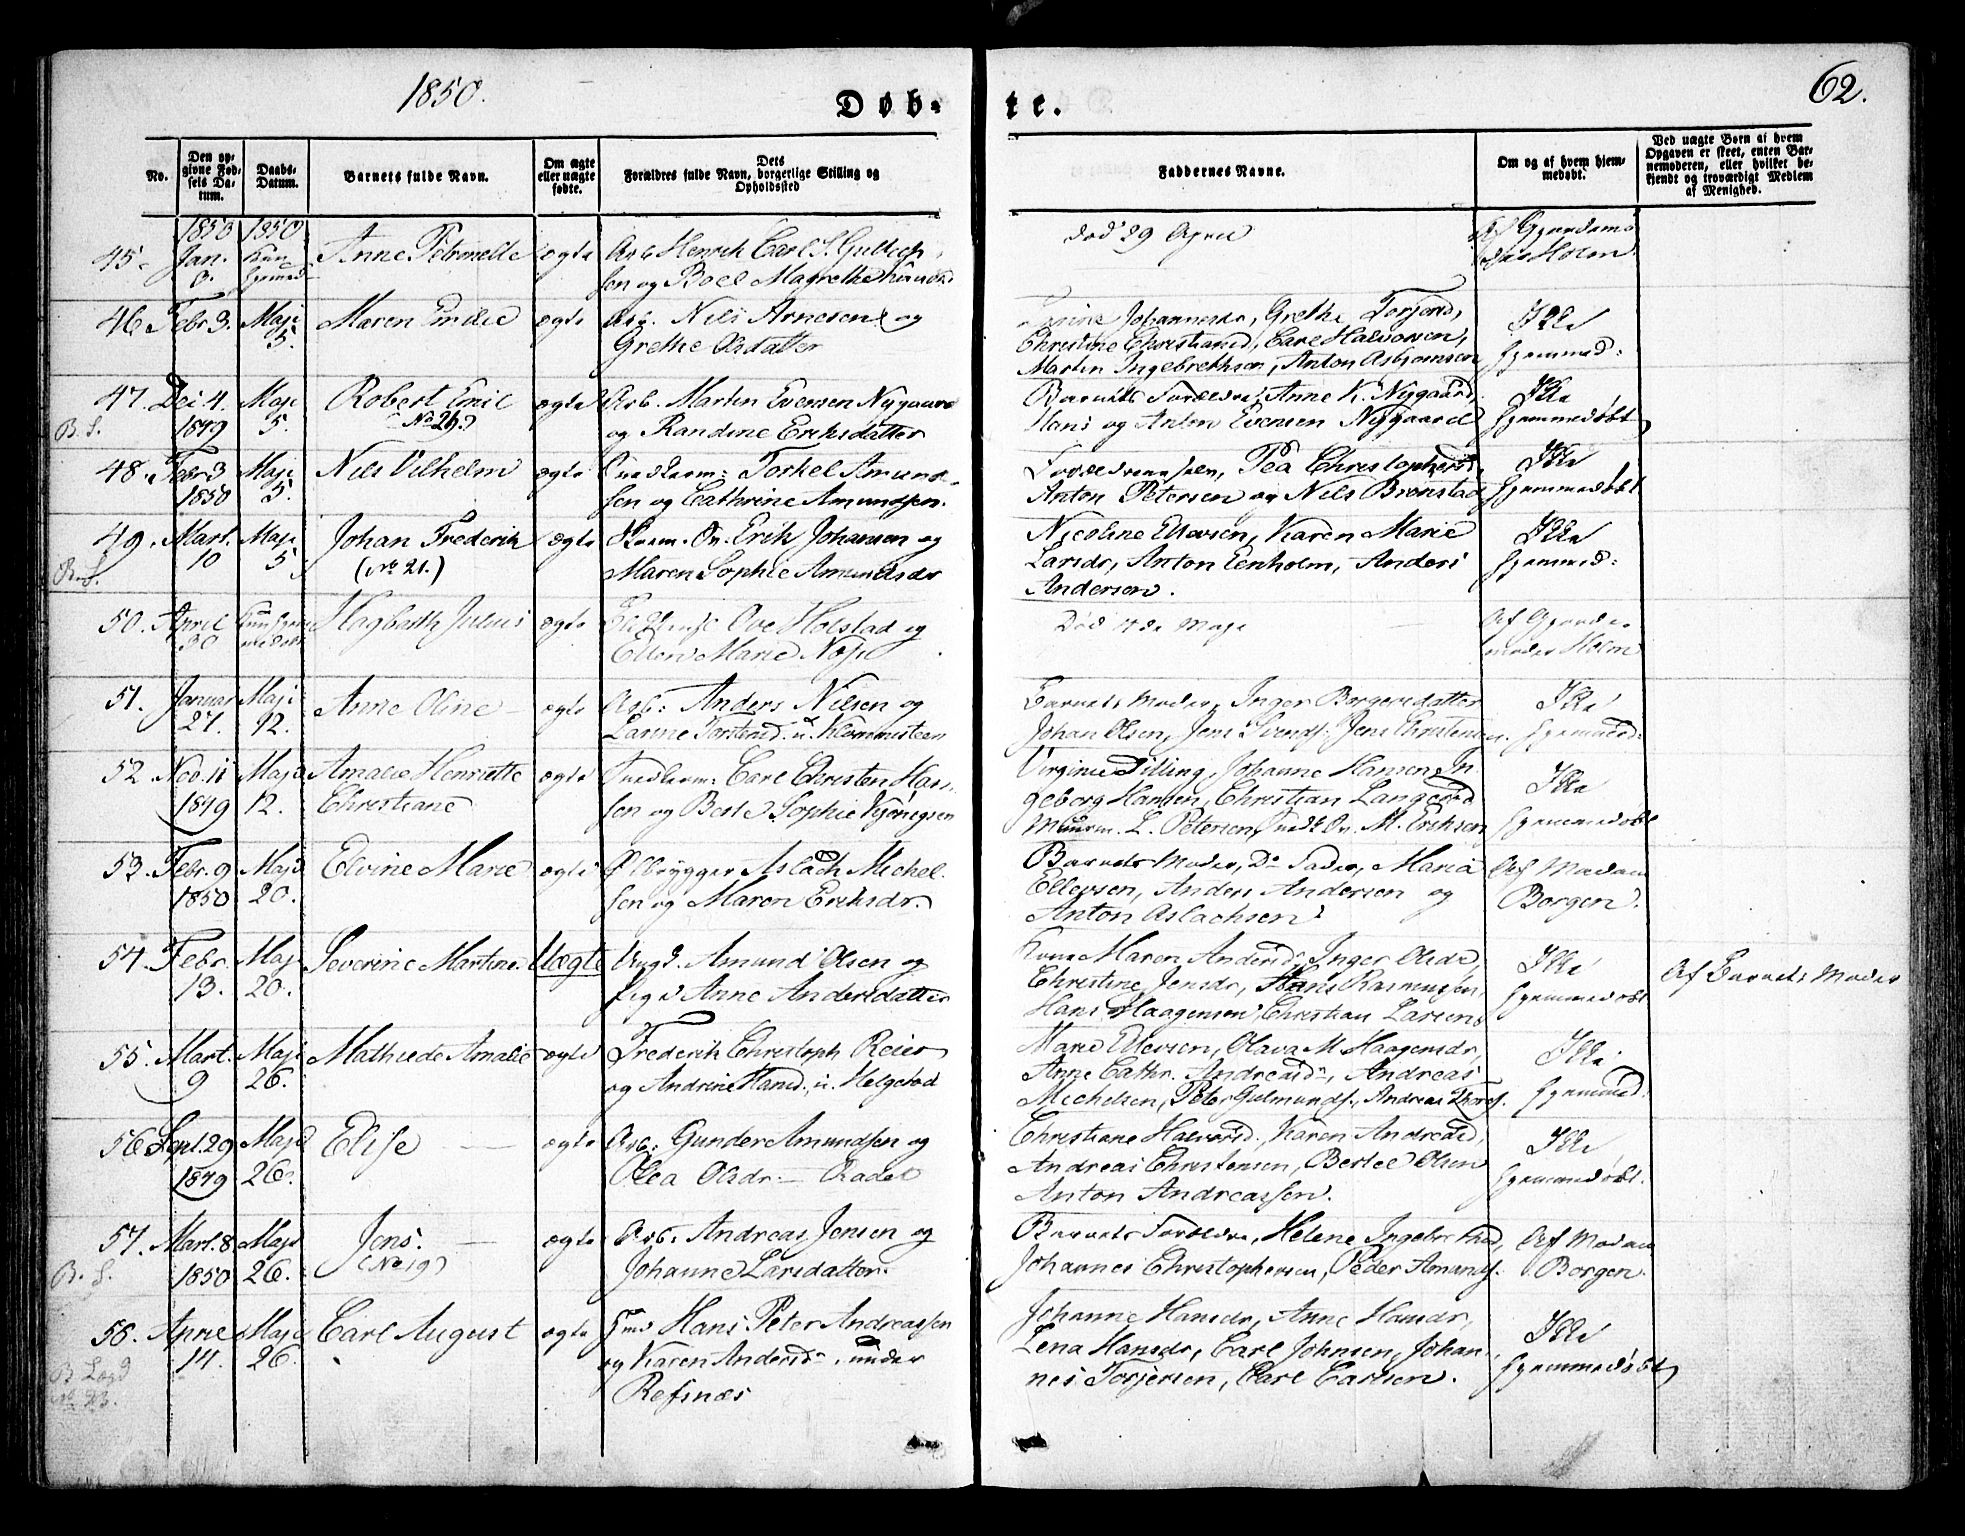 1850.
62.
Døb-
te.
No.
Den op-
givne Fød-
sels Da-
tum.
Daabs-
Datum.
Barnets fulde Navn.
Om ægte
eller uægte
fødte.
Dets
Forældres fulde Navn, borgerlige Stilling og
Opholdssted
Faddernes Navne.
Om og af hvem hjem-
medøbt.
Ved uægte Børn af hvem
Opgaven er skeet, enten Bar-
nemoderen, eller hvilket be-
kjendt og troværdigt Medlem
af Menighed.
1850 1850
45. Jan. Kun Anne Petronelle ægte Arb. Henrik Carl
8. hjemd. sen og Boel Magrethe
død 29 April
Af Gjordemo
der Holm
46 Febr 3. Maji Maren Emilie ægte Arb. Nils Arnesen og
5. Grethe Olsdatter
Johannesdr, Grethe Torjersd,
Christine Christiansd, Carl Halvorsen,
Martin Ingebrethsen, Anton Asbjornsen
Ikke
hjemmed:
47. Dec 4. Maji Robert Emil ægte Arb. Martin Evensen Nygaard
B. L. 1849 5. No 26 og Randine Eriksdatter
Barnets Forældre, Anne K. Nygaard,
Hans og Anton Evensen Nygaard
Ikke
hjemmedøbt
48. Febr 3 Maji Nils Vilhelm ægte Snedkerm: Torkel Amund-
1850 5. sen og Cathrine Amundsen.
Pea Christophersd,
Anton Petersen og Nils Brønstad
Ikke
hjemmedøbt
49. Mart. Maji Johan Frederik ægte Skom. Sv. Erik Johansen og
B. L. 10 5 (No 21.) Maren Sophie Amundsdr
Nicoline Ellevsen, Karen Marie
Larsdr, Anton Eenholm, Anders
Andersen.
Ikke
hjemmed:
50. April Kun hjem Hagbarth Julius ægte Ove Holstad og
30 medøbt Ellen Marie Noje
Død 4de Maji
Af Gjorde-
moder Holm
51. Januar Maji Anne Oline — ægte Arb: Anders Nilsen og
27. 12. Larine Torstensd. u. Klommesteen
Barnets Moder, Inger Borgersdatter
Johan Olsen, Jens Svends. Jens Christensen.
Ikke
hjemmed:
52 Nov. 11 Maji Amalie Henriette ægte Snedkerm: Carl Christen Han-
1849 12. Christiane sen og Berte Sophie Kjønigsen
Virginie Dilling, Johanne Hansen, In
geborg Hansen, Christian Langsrud
Muurm. L. Petersen, Snedk Sv. M. Eriksen
Ikke
hjemmedøbt
53. Febr. 9 Maji Elvine Marie ægte Ølbrygger Aslach Michel-
1850 20. sen og Maren Eriksdr.
Barnets Moder, Do Fader, Maria
Ellevsen, Anders Andersen og
Anton Aslachsen
Af Madam
Borgen.
54. Febr. Maji Severine Martine. Uægte Ungk. Amund Olsen og
13. 20. Pige Anne Andersdatter
Kone Maren Andersd, Inger Olsdr,
Christine Jensdr, Hans Rasmussen,
Hans Haagensen, Christian Larsen
Ikke
hjemmedøbt
Af Barnets Moder
55. Mart. Maji Mathilde Amalie ægte Frederik Christoph Reier
9 26. og Andrine Hansd. u. Helgerød
Marie Ellevsen, Olava M. Haagensdr,
Anne Cathr. Andreasdr, Andreas
Michelsen, Peter Gulmunds., Andreas Thores.
Ikke
hjemmed:
56. Sept. 29 Maji Elise — ægte Arb: Gunder Amundsen og
1849 26. Olea Olsdr. — Radet
Christiane Halvorsd., Karen Andreasd,
Andreas Christensen, Bertel Olsen
Anton Andreassen.
Ikke
hjemmedøbt.
57. Mart. 8 Maji Jens. — ægte Arb. Andreas Jensen og
B. L. 1850 26. (No 19) Johanne Larsdatter.
Barnets Forældre, Helene Ingebr
Johannes Christophersen, Peder Amunds.
Af Madam
Borgen.
58. April Maji Carl August ægte Hans Peter Andreassen
14. 26. og Karen Andersdr, under
B Lagd Refsnæs
No 23.
Johanne Hansdr, Anne Hansdr,
Lena Hansdr, Carl Johnsen, Johan-
nes Torjersen, Carl Carlsen.
Ikke
hjemmedøbt